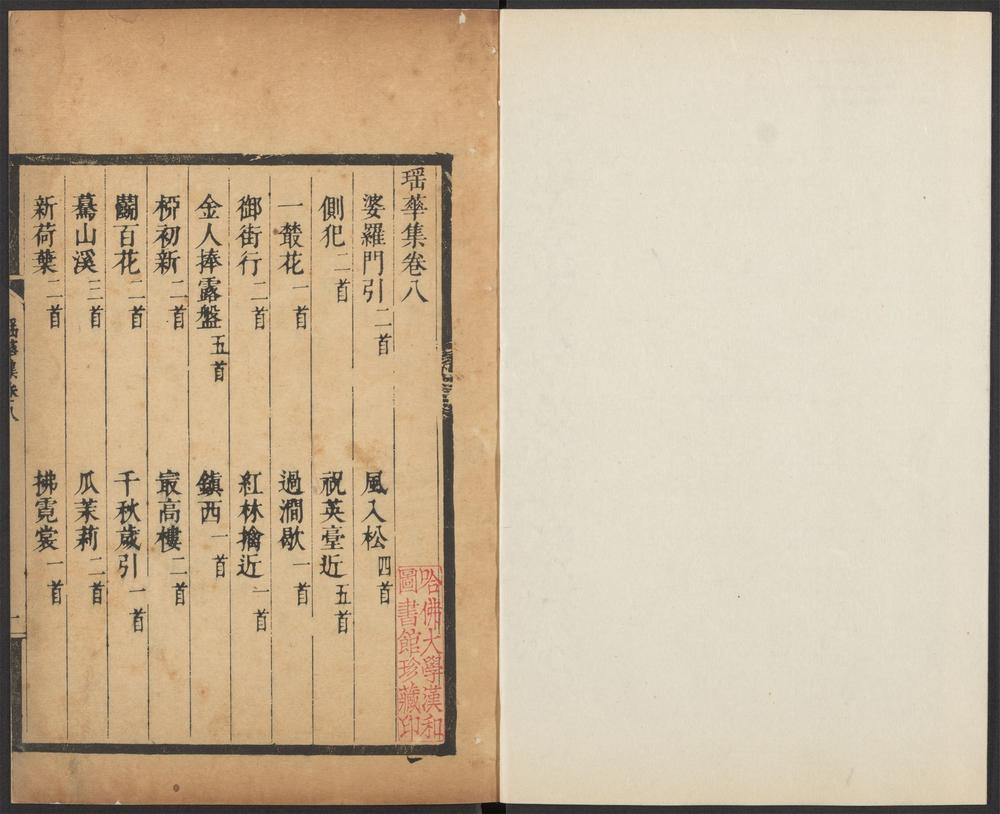 瑶華集卷八
婆羅門引二首　風入松四首
側犯二首　祝英臺近五首
一叢花一首　過澗歇一首
御街行二首　紅林擒近一首
金人捧露盤五首　鎮西一首
柳初新二首　最高樓二首
鬭百花二首　千秋歲引一首
驀山溪三首　瓜茉莉二首
新荷葉二首　拂霓裳一首
瑶華集卷八
一
哈佛大學漢和
圖書館珍藏印